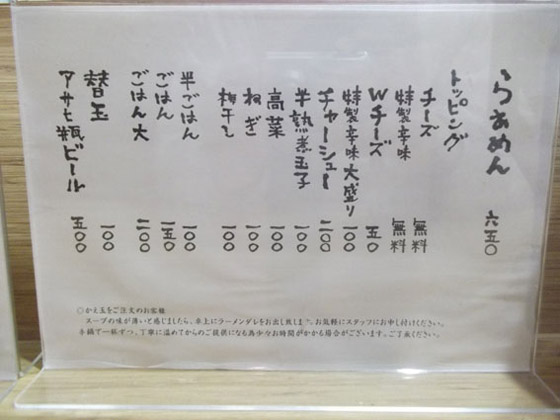 らぁめん 六五〇
トッピング
チーズ 無料
特製辛味 無料
Wチーズ 五〇
特製辛味大盛り 一〇〇
チャーシュー 二〇〇
半熟煮玉子 一〇〇
高菜 一〇〇
ねぎ 一〇〇
梅干し 一〇〇
半ごはん 一〇〇
ごはん 一五〇
ごはん大 二〇〇
替玉 一〇〇
アサヒ瓶ビール 五〇〇
○かえ玉をご注文のお客様
スープの味が薄いと感じましたら、卓上にラーメンダレをお出し致します。お気軽にスタッフにお申し付けください。
手鍋で一杯ずつ、丁寧に温めてからのご提供になる為少々お時間がかかる場合がございます。ご了承ください。